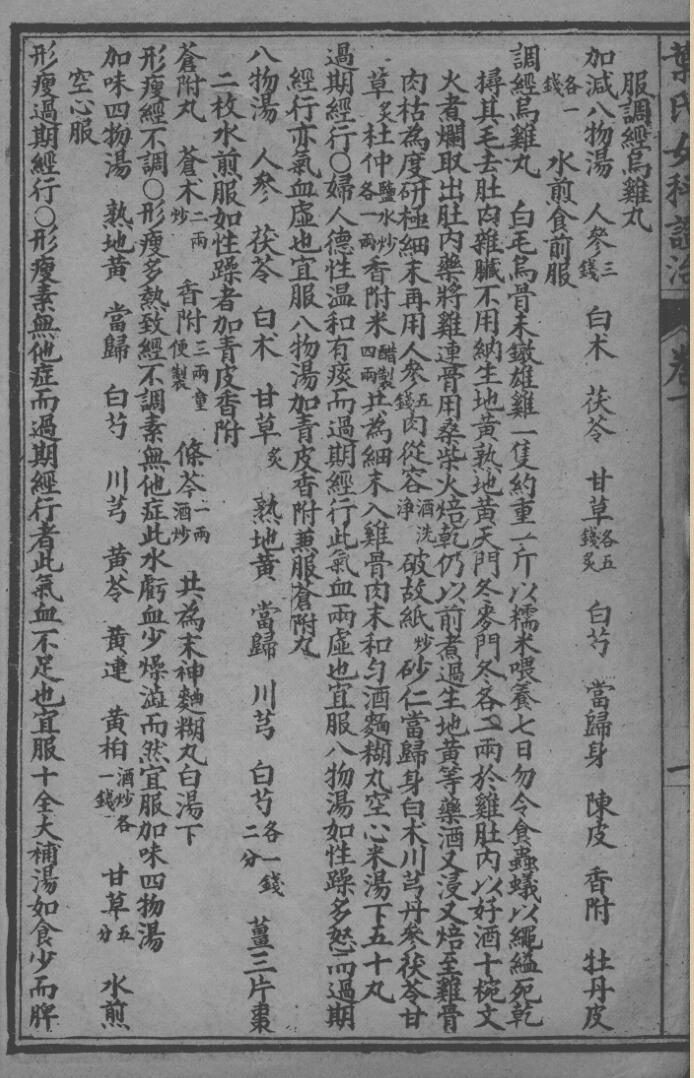 葉氏女科證治 卷一 一
服調經烏雞丸
加減八物湯 人參三錢 白术 茯苓 甘草各五錢炙 白芍 當歸身 陳皮 香附 牡丹皮
各一錢 水煎食前服
調經烏雞丸 白毛烏骨未鐓雄雞一隻約重一斤以糯米喂養七日勿令食蟲蟻以繩縊死乾
撏其毛去肚內雜臟不用納生地黃熟地黃天門冬麥門冬各二兩於雞肚內以好酒十椀文
火煮爛取出肚內藥將雞連骨用桑柴火焙乾仍以前煮過生地黃等藥酒又浸又焙至雞骨
肉枯為度研極細末再用人參五錢肉從容酒洗淨破故紙炒砂仁當歸身白术川芎丹參茯苓甘
草炙杜仲鹽水炒各一兩香附米醋製四兩共為細末入雞骨肉末和勻酒麵糊丸空心米湯下五十丸
過期經行○婦人德性溫和有痰而過期經行此氣血兩虛也宜服八物湯如性躁多怒而過期
經行亦氣血虛也宜服八物湯加青皮香附兼服蒼附丸
八物湯 人參 茯苓 白术 甘草炙 熟地黃 當歸 川芎 白芍各一錢二分 薑三片棗
二枚水煎服如性躁者加青皮香附
蒼附丸 蒼术二兩炒 香附三兩童便製 條芩一兩酒炒 共為末神麯糊丸白湯下
形瘦經不調○形瘦多熱致經不調素無他症此水虧血少燥澁而然宜服加味四物湯
加味四物湯 熟地黃 當歸 白芍 川芎 黃芩 黃連 黃柏酒炒各一錢 甘草五分 水煎
空心服
形瘦過期經行○形瘦素無他症而過期經行者此氣血不足也宜服十全大補湯如食少而脾